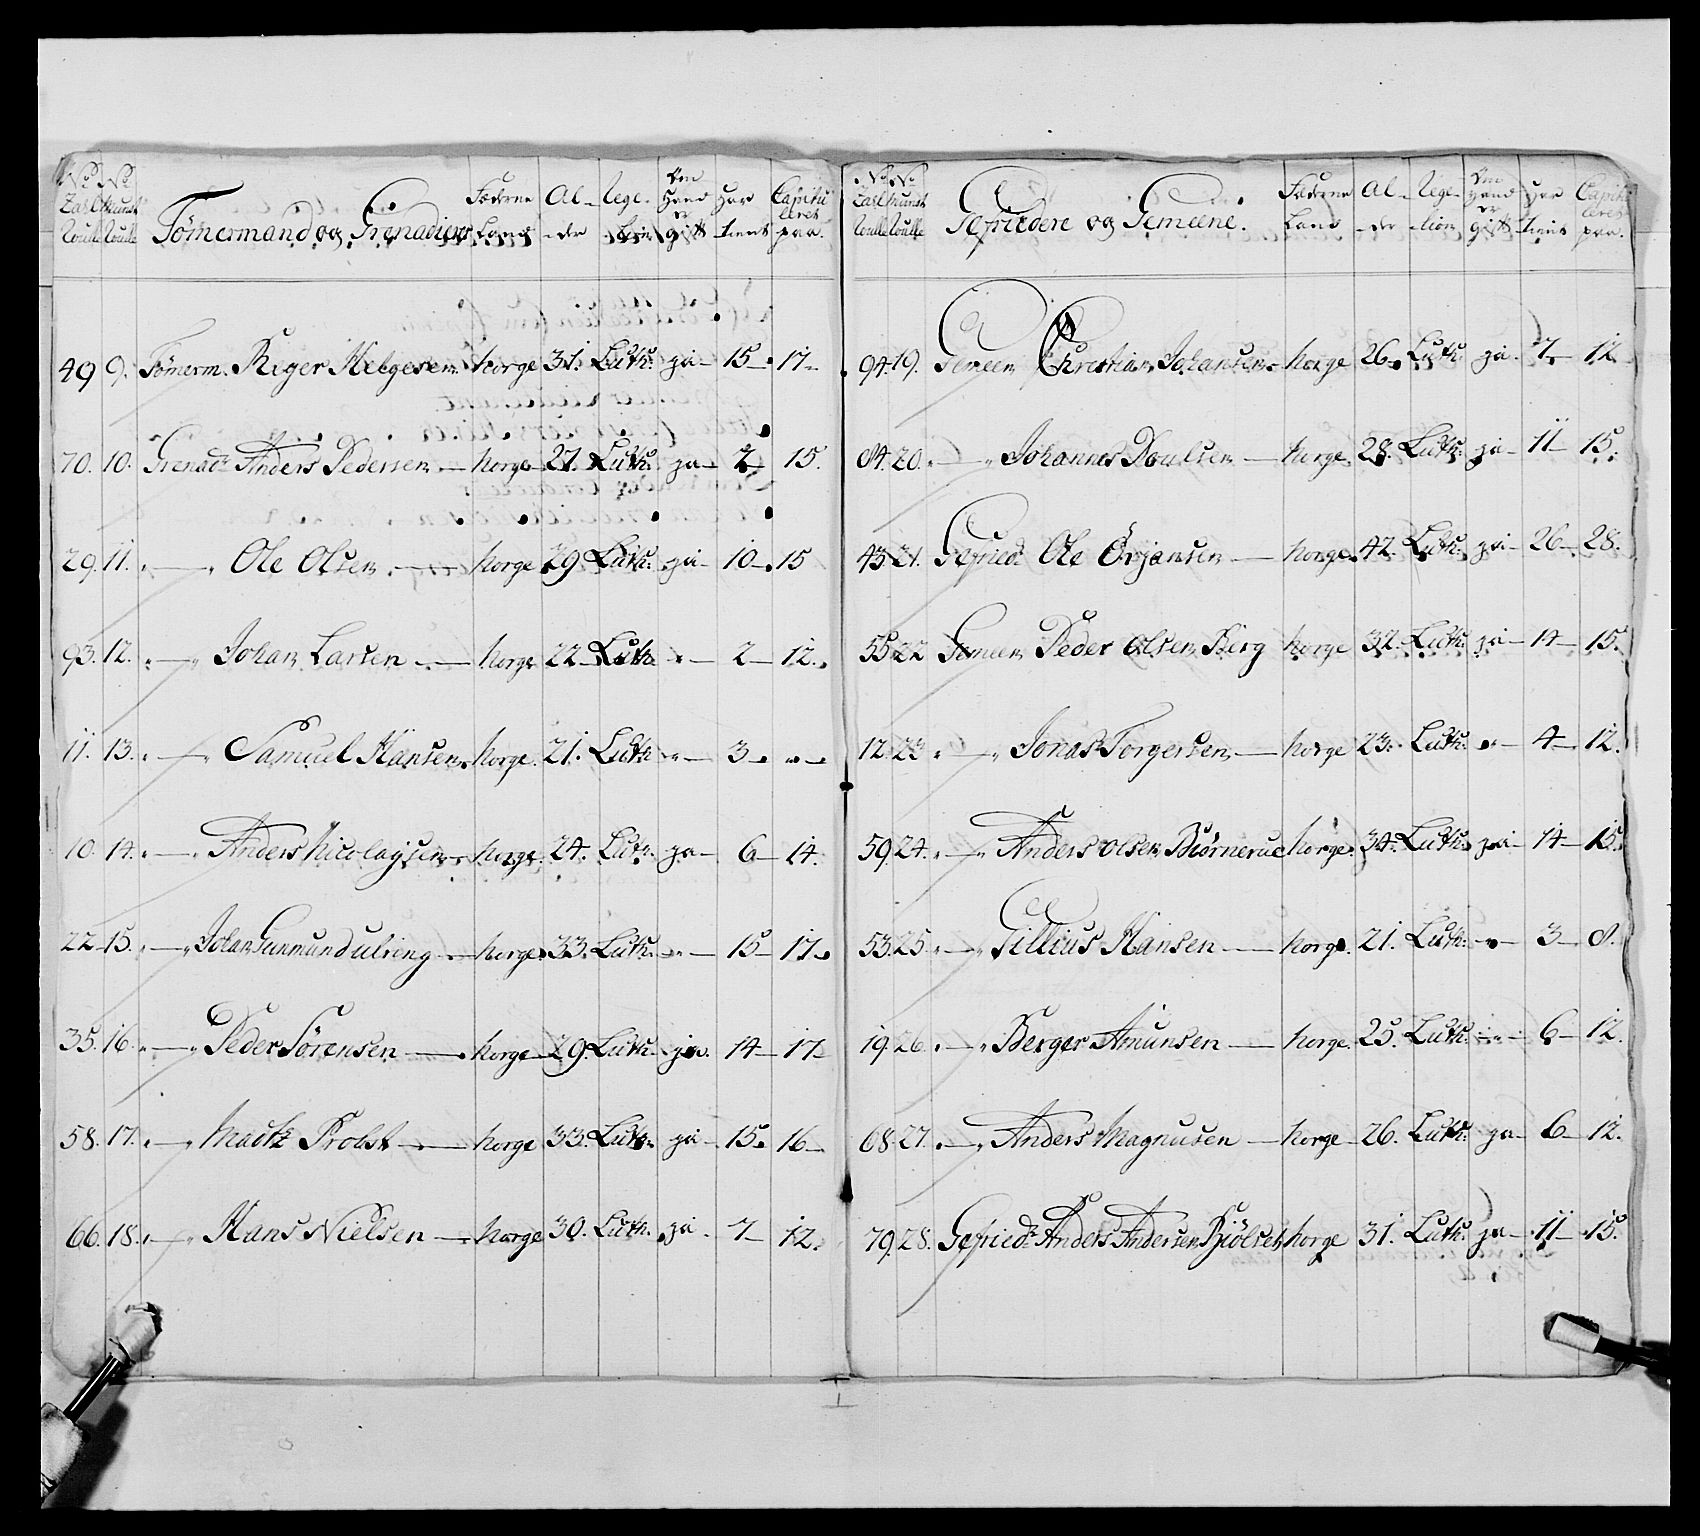 No No
Zahl Munst
Roulle Roulle
Tömermand og Grenadiers
Fæderne Land
Al-der
Rege-lion
Om Hand er gift
Har tient
Capitu leret paa.
49 9. Tömerm. Birger Helgesen Norge 31. Luth: ja 15 17
70. 10. Grenadr Anders Pedersen Norge 27. Luth: ja 2 15.
29. 11. " Ole Olsen Norge 29 Luth: ja 10 15
93. 12. " Johan Larsen Norge 22 Luth " 2 12.
11. 13. " Samuel Hansen Norge. 21. Luth " 3 "
10. 14. " Anders Nicolaysen Norge. 24. Luth. ja 6 14.
22 15. " Johan Gunmundulring Norge 33. Luth: " 15 17
35. 16. " Peder Sörensen Norge 29. Luth: ja. 14 17
58. 17. " Madtz Probst Norge 33. Luth: ja 15 16
66. 18. " Hans Nielsen Norge 30. Luth: ja 7 12.
No No
Zahl Munst
Roulle Roulle
Gefriedere og Gemeene.
Fæderne Land
Al-der
Rege-lion
Om Hand er gift
Har tient
Capitu leret paa.
94. 19. Gemeen Christian Johansen Norge 26. Luth: ja 7 12
84. 20. " Johannes Poulsen Norge 28. Luth: ja 11 15.
43 21. Gefriedr Ole Örjansen Norge 42. Luth: ja 26 28.
55 22 Gemeen Peder Olsen Berg Norge 32. Luth: ja 14 15.
12. 23 " Jonas Torgersen Norge 23. Luth: " 4 12.
59. 24. " Anders Olsen Biörnerud Norge. 34. Luth: ja 14 15.
53. 25. " Gillius Hansen Norge. 21. Luth: " 3 8.
19. 26. " Berger Amunsen Norge. 25. Luth: " 6 12.
68. 27. " Anders Magnusen Norge 26. Luth: ja 6 12.
79. 28. Gefriedr Anders Andersen Biölset Norge 31. Luth: ja 11 15.